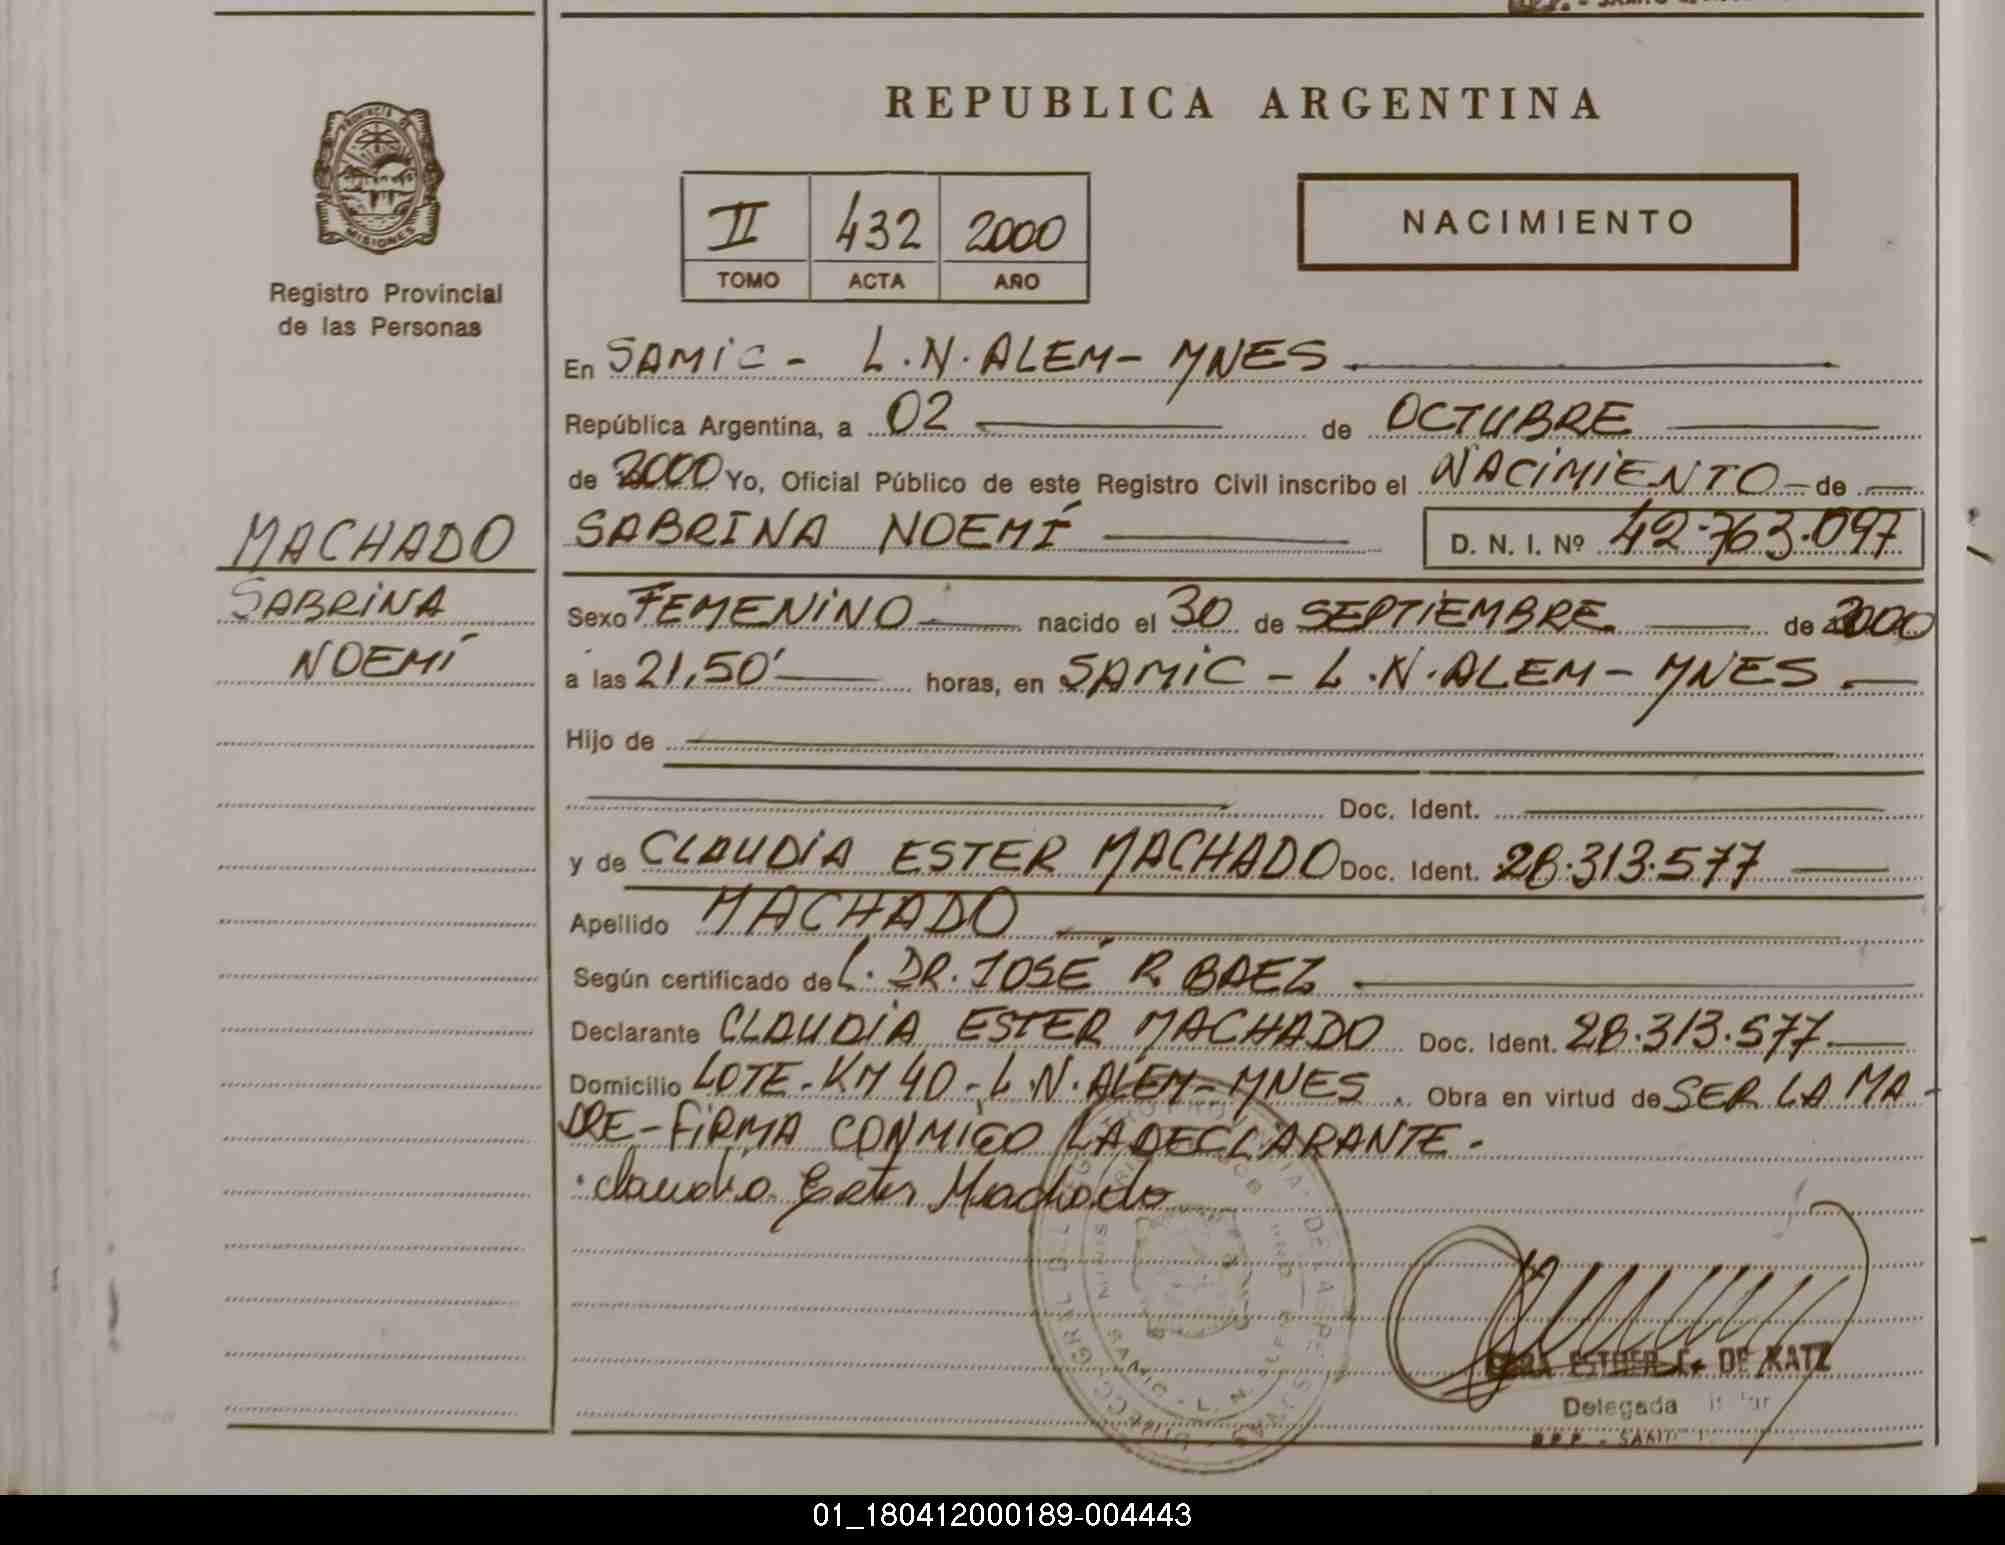 REPUBLICA ARGENTINA
PROVINCIA DE
MISIONES
Registro Provincial
de las Personas
II 432 2000
TOMO ACTA AÑO
NACIMIENTO
En SAMIC - L.N. ALEM - MNES
República Argentina, a 02 de OCTUBRE
de 2000 Yo, Oficial Público de este Registro Civil inscribo el NACIMIENTO de
SABRINA NOEMÍ D. N. I. Nº 42.763.097
MACHADO
SABRINA
NOEMÍ
Sexo FEMENINO nacido el 30 de SEPTIEMBRE de 2000
a las 21,50' horas, en SAMIC - L.N. ALEM - MNES
Hijo de
Doc. Ident.
y de CLAUDIA ESTER MACHADO Doc. Ident. 28.313.577
Apellido MACHADO
Según certificado de L. DR. JOSÉ R BAEZ
Declarante CLAUDIA ESTER MACHADO Doc. Ident. 28.313.577
Domicilio LOTE - KM 40 - L.N. ALEM - MNES. Obra en virtud de SER LA MA-
DRE - FIRMA CONMIGO LA DECLARANTE -
Claudia Ester Machado
ESTHER C. DE KATZ
Delegada
01_180412000189-004443